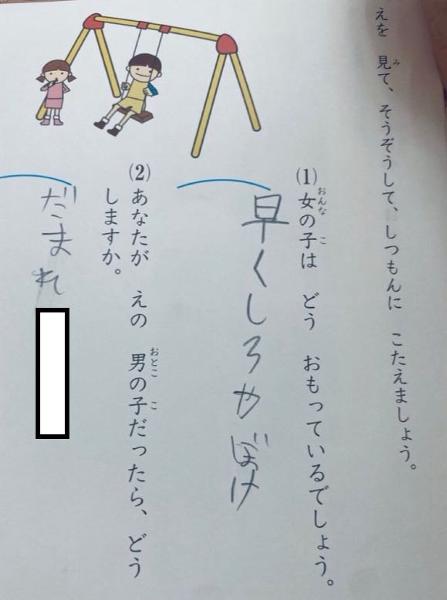 えを 見て、そうぞうして、しつもんに こたえましょう。
(1) 女の子は どう おもっているでしょう。
早くしろやぼけ
(2) あなたが えの 男の子だったら、どう
しますか。
だまれ